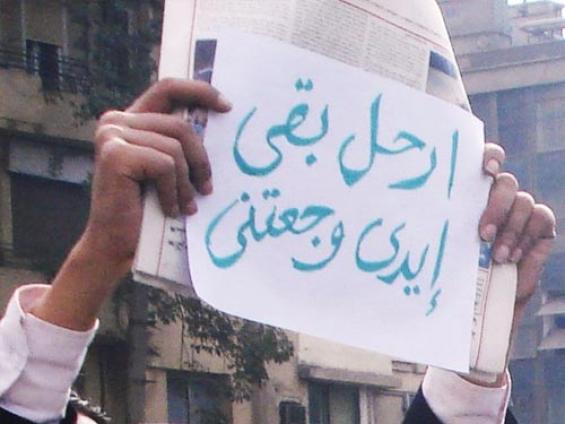 ارحل بقى
إيدى وجعتنى